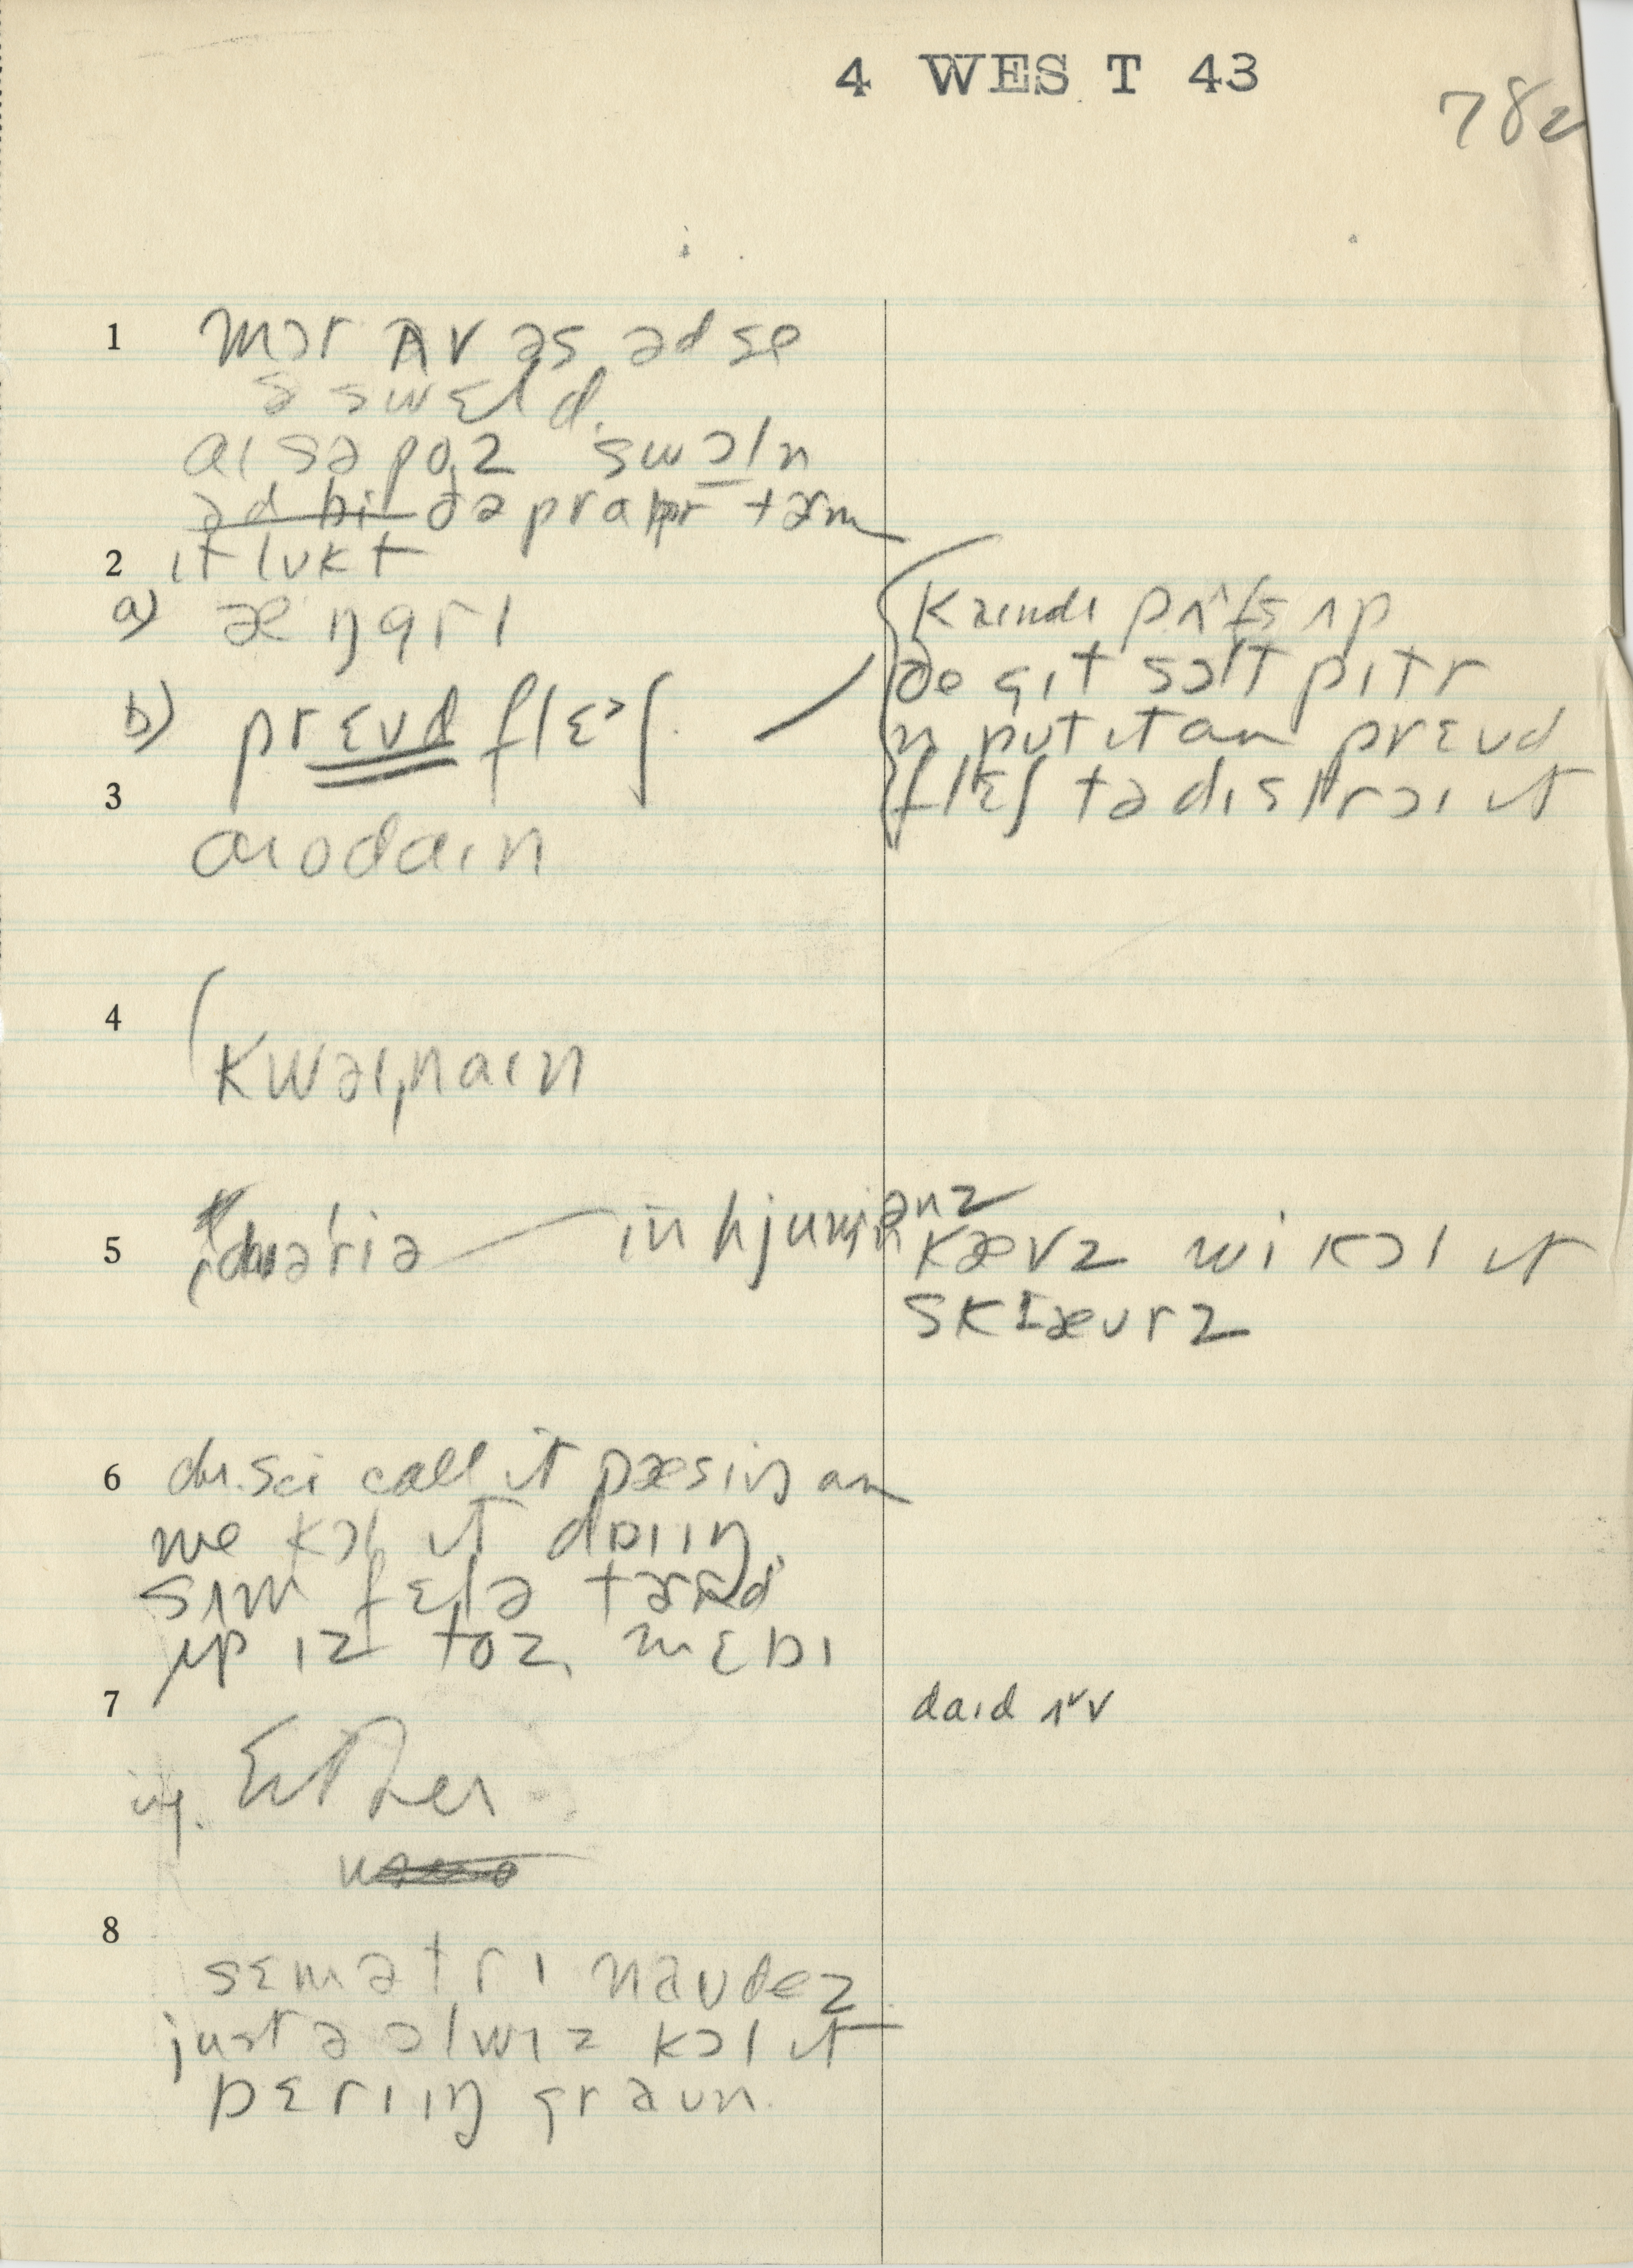 4 WEST 43
782
1 mɔr ʌv əs əd se
ə swɛld
aɪ səpoz swɔln
ə̶d̶ ̶b̶i̶ ðə prapr tərm
2 ɪt lʊkt
a) æŋgrɪ
b) prɛʊd flɛʃ.
kaɪndɪ pʌfs ʌp
ðe gɪt sɔlt pitr
n put ɪt an prɛʊd
flɛʃ tə dɪstrɔɪ ɪt
3 aɪodaɪn
4 kwaɪnaɪn
5 daɪəriə in hjumənz
kævz wi kɔl ɪt
skæʊrz
6 call ɪt pæsiŋ an
we kɔl ɪt dɑɪɪŋ
sʌm fɛlə tərnd
ʌp ɪz toz
7 daɪd ʌv
Either
8 sɛmətrɪ naʊdez
just ə ɔlwɪz kɔl ɪt
bɛrɪɪŋ graʊn.